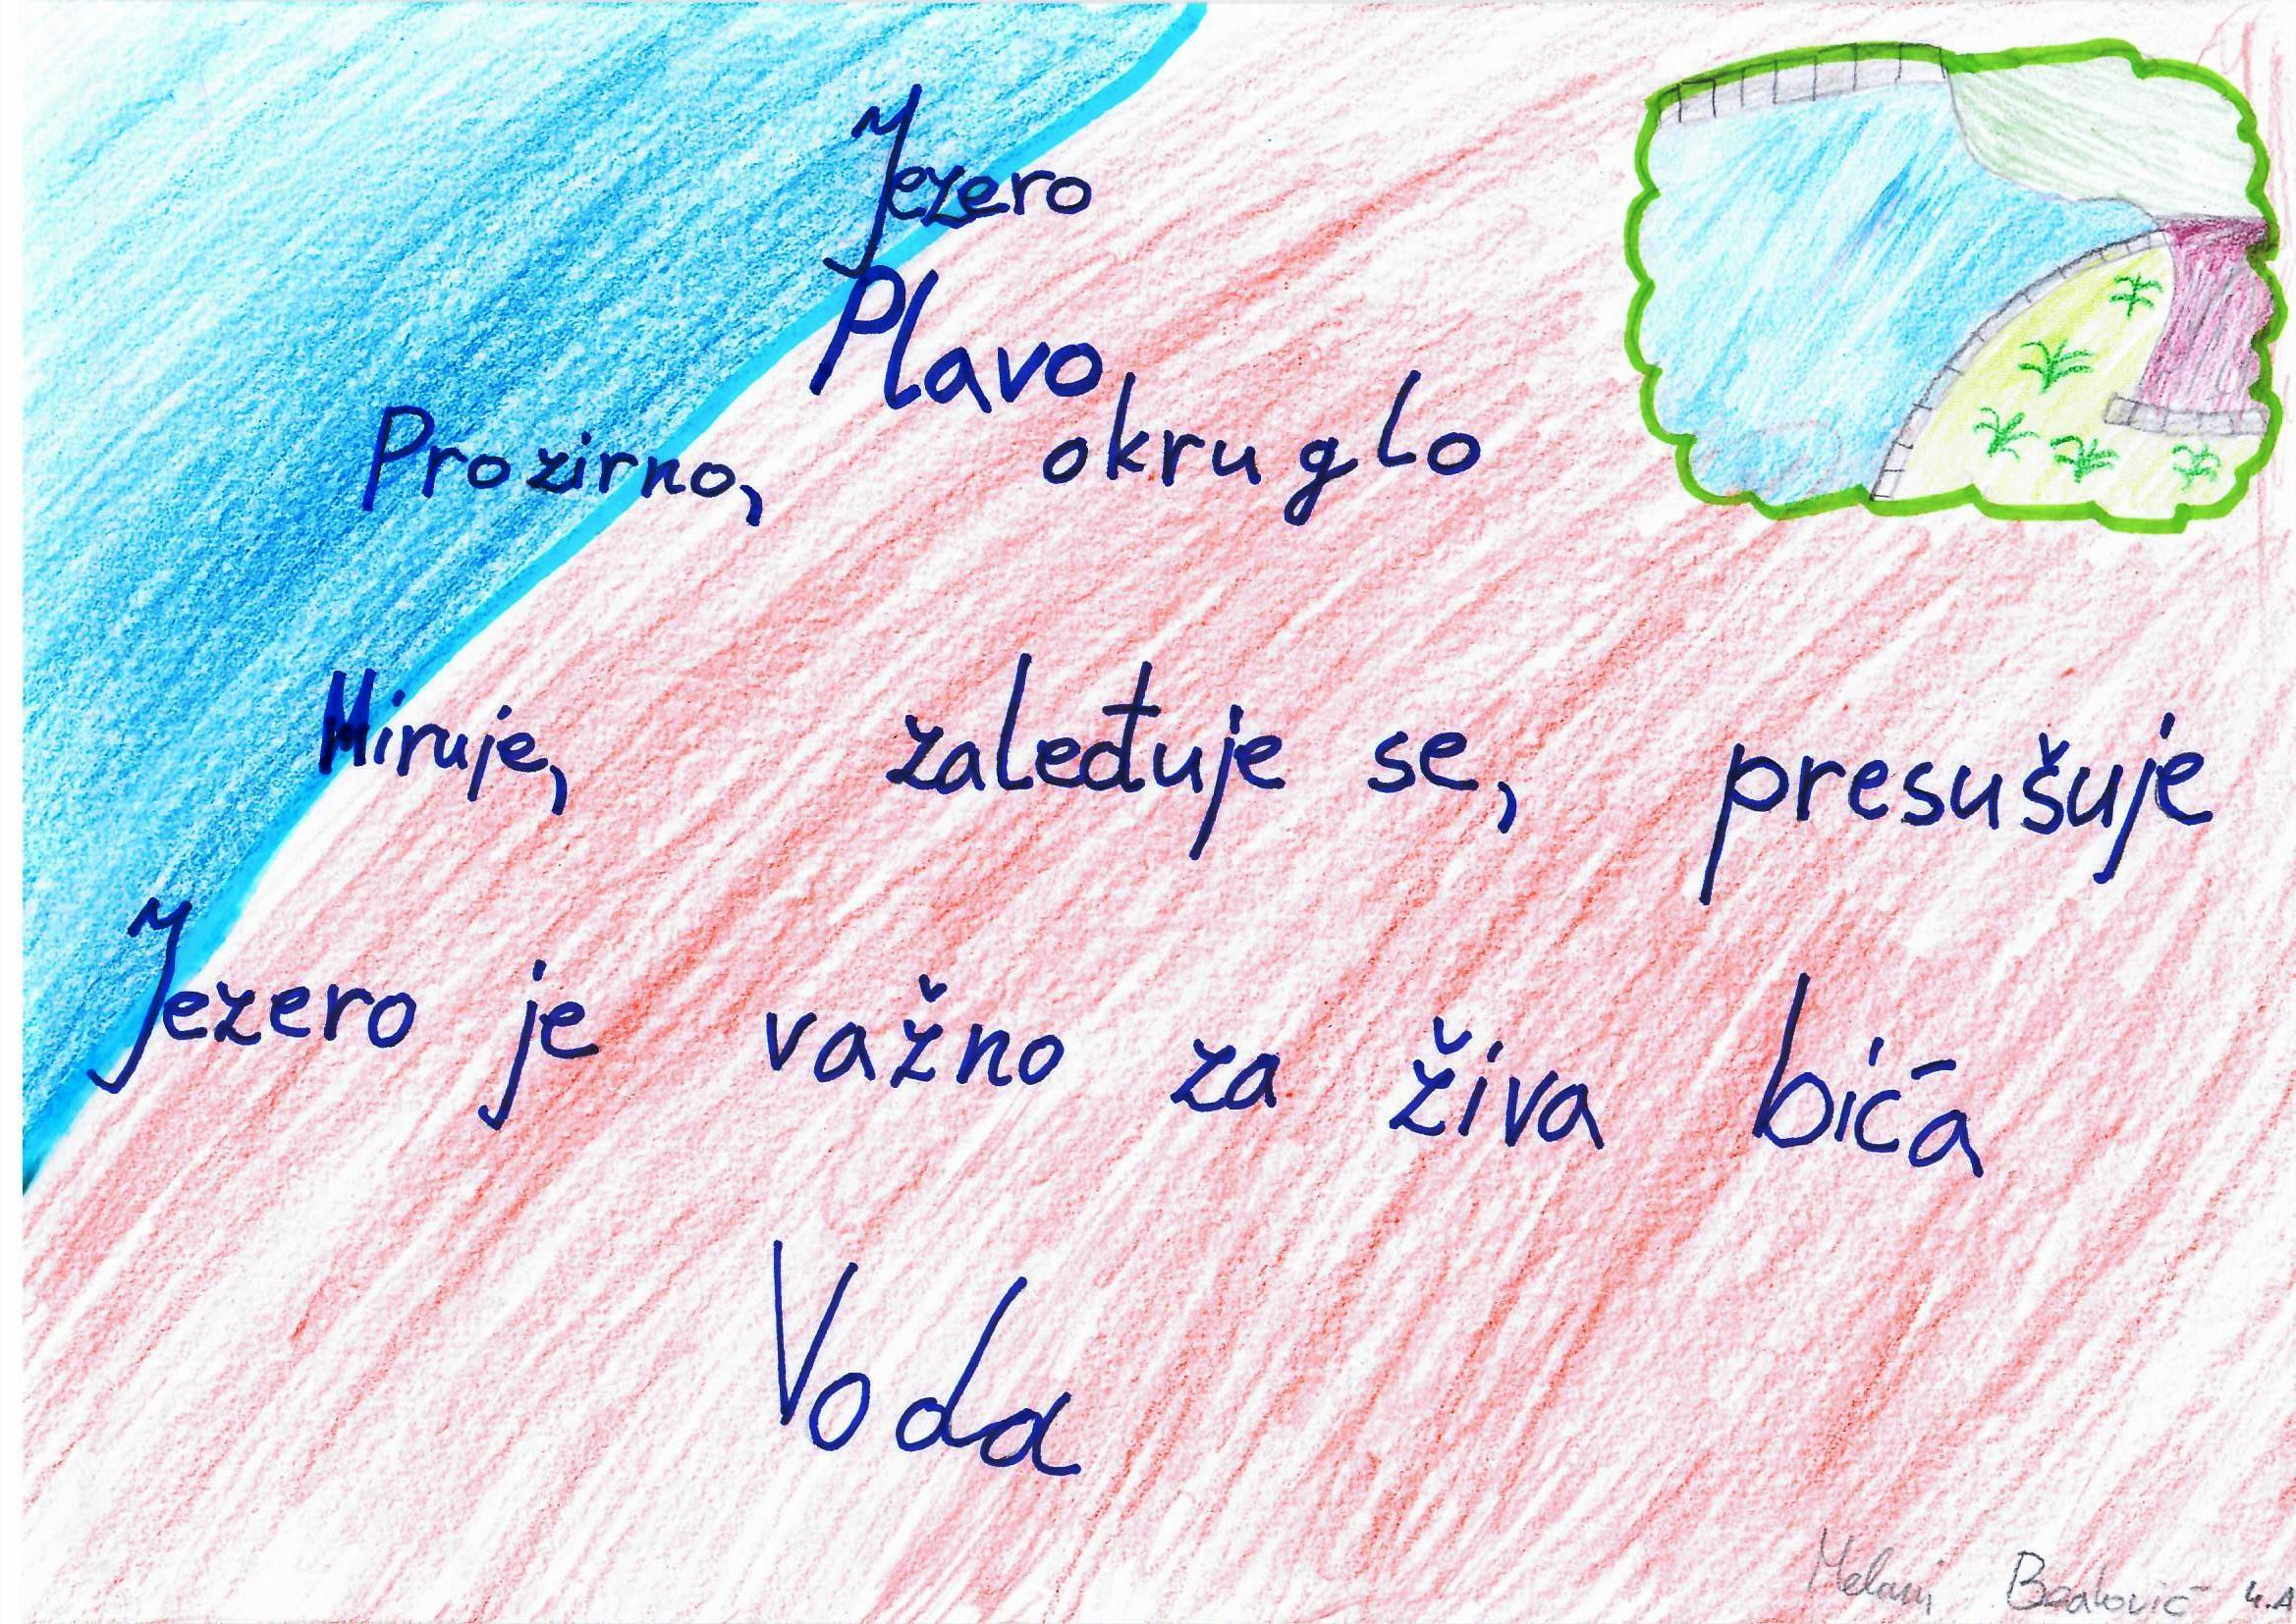 Jezero
Plavo,
Prozirno, okruglo
Miruje, zaleđuje se, presušuje
Jezero je važno za živa bića
Voda
Melani 4.A